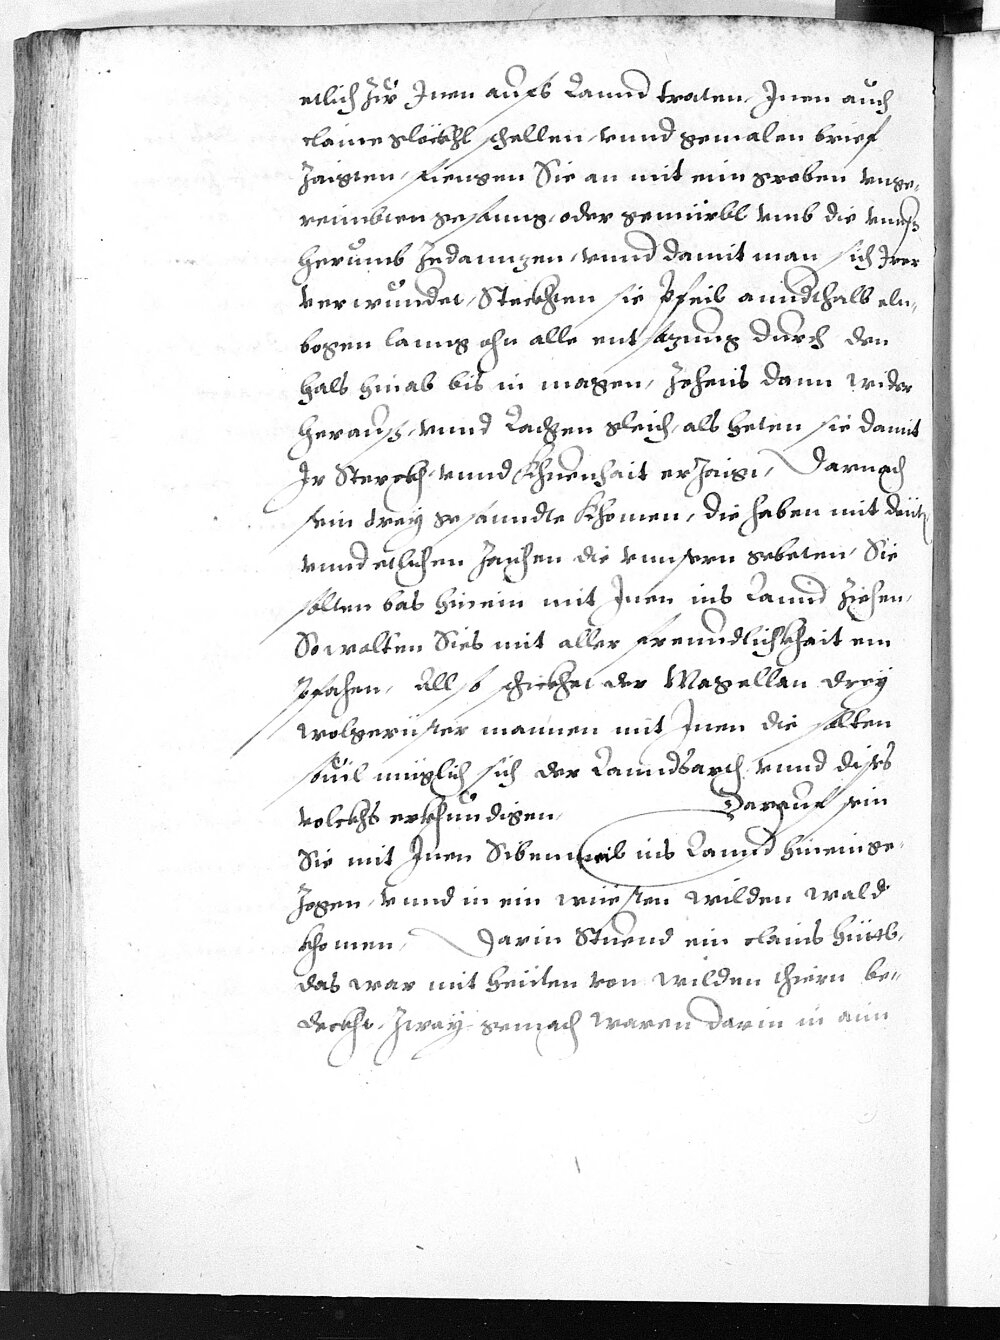 etlich zu Inen aufs Lannd traten, Inen auch
claine glöckhl schellen, vnnd gemalen brief
zaigten, fiengen Sie an mit eim groben vnge-
reimbten gesanng, oder gemürbl vmb die vnnsern
herumb zedannzen, vnnd damit man sich Irer
verwundet, Steckhten sie Pfeil anndthalb eln-
bogen lanng ohn alle entsazung durch den
hals hinab bis in magen, zohens dann wider
herauß, vnnd Lachten gleich, als heten sie damit
Ir Sterckh, vnnd Khuenhait erzaigt, Darnach
sein drey gesanndte khomen, die haben mit deut
vnnd etlichen zaichen die vnnsern gebeten, Sie
solten bas hinein mit Inen ins Lannd ziehen,
So wolten Sies mit aller freundlichkhait em
pfahen, Also schickhet der Magellan drey
wolgerüster mannen mit Inen die solten
souil müglich sich der Lanndsarch vnnd dises
volckhs erkhundigen, Darauf sein
Sie mit Inen Siben meil ins Lannd hineinge-
zogen, vnnd in ein wüesten wilden wald
khomen, Darin Stuend ein clains hütl,
das war mit heüten von wilden thiern be-
deckht, zway gemach waren darin in aim